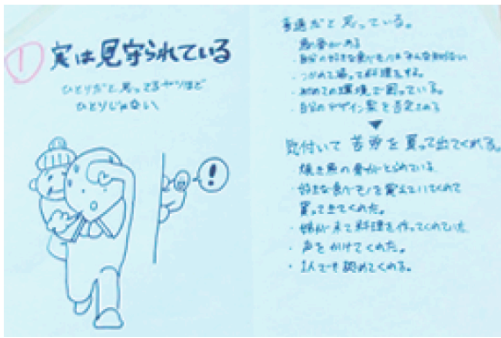 ①
実は見守られている
ひとりだと思ってるヤツほど
ひとりじゃない
!
普通だと思っている。
・魚の骨がある
・自分の好きな食べモノは
・つかれて帰って料理をする。
・初めての環境で困っている。
・自分のデザイン案を否定される
▼
気付いて苦労を買って出てくれる。
・焼き魚の骨がとられている
・好きな食べモノを覚えていてくれて
買ってきてくれた。
・姉が来て料理を作ってくれていた
・声をかけてくれた。
・1人でも認めてくれる。